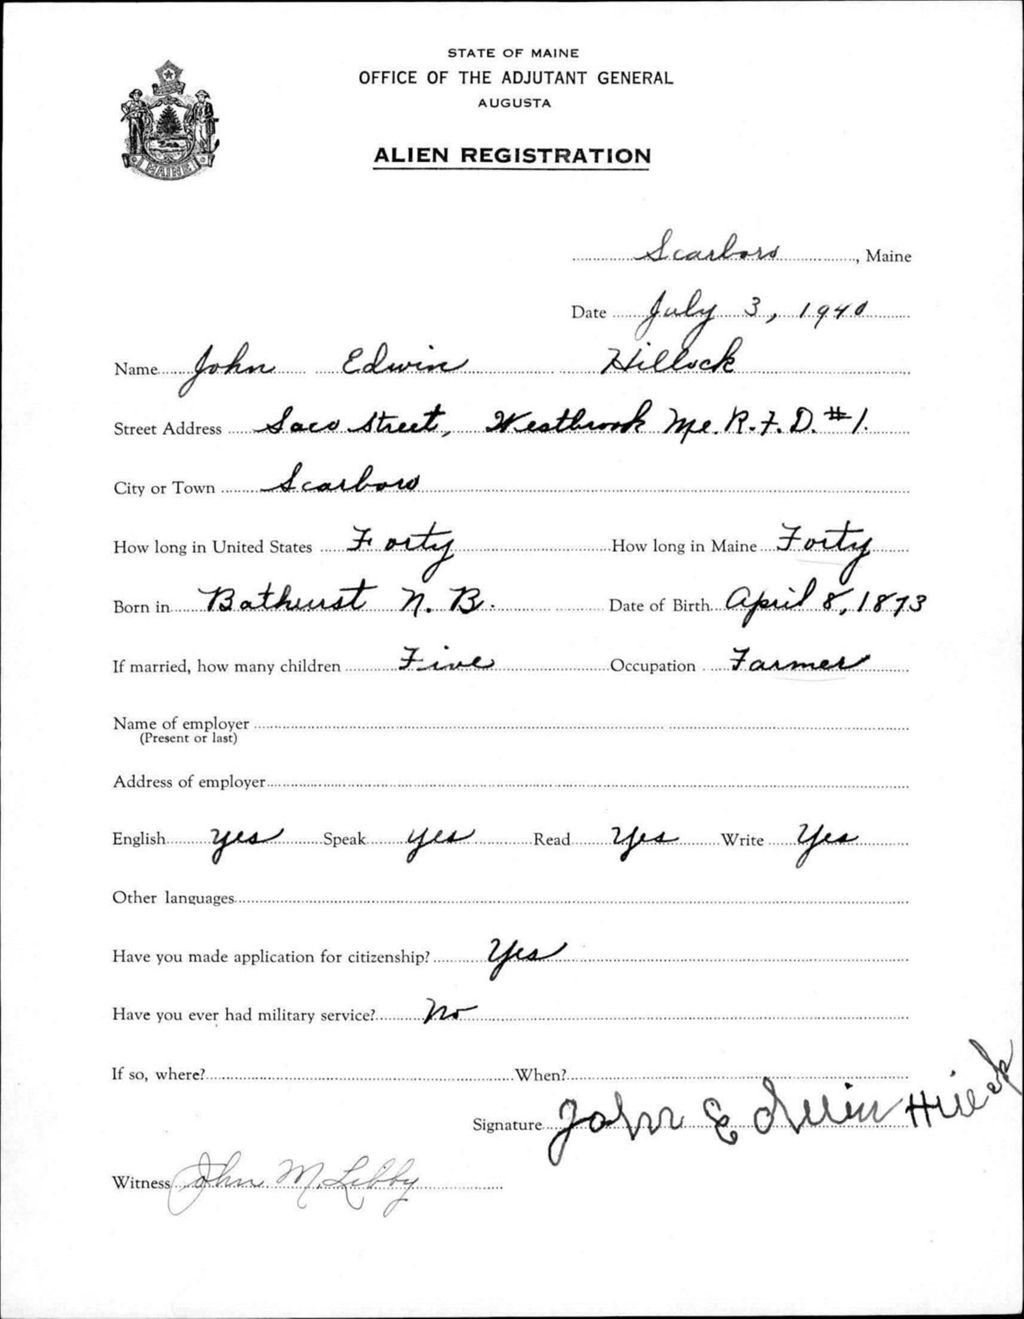 STATE OF MAINE
OFFICE OF THE ADJUTANT GENERAL
AUGUSTA
ALIEN REGISTRATION
MAINE
Scarboro, Maine
Date July 3, 1940
Name John Edwin Hillock
Street Address Saco Street, Westbrook Me. R.F.D. #1.
City or Town Scarboro
How long in United States Forty How long in Maine Forty
Born in Bathurst N. B. Date of Birth April 8, 1873
If married, how many children Five Occupation Farmer
Name of employer
(Present or last)
Address of employer
English yes Speak yes Read Yes Write Yes
Other languages
Have you made application for citizenship? Yes
Have you ever had military service? No
If so, where? When?
Signature John Edwin Hillock
Witness John M. Libby